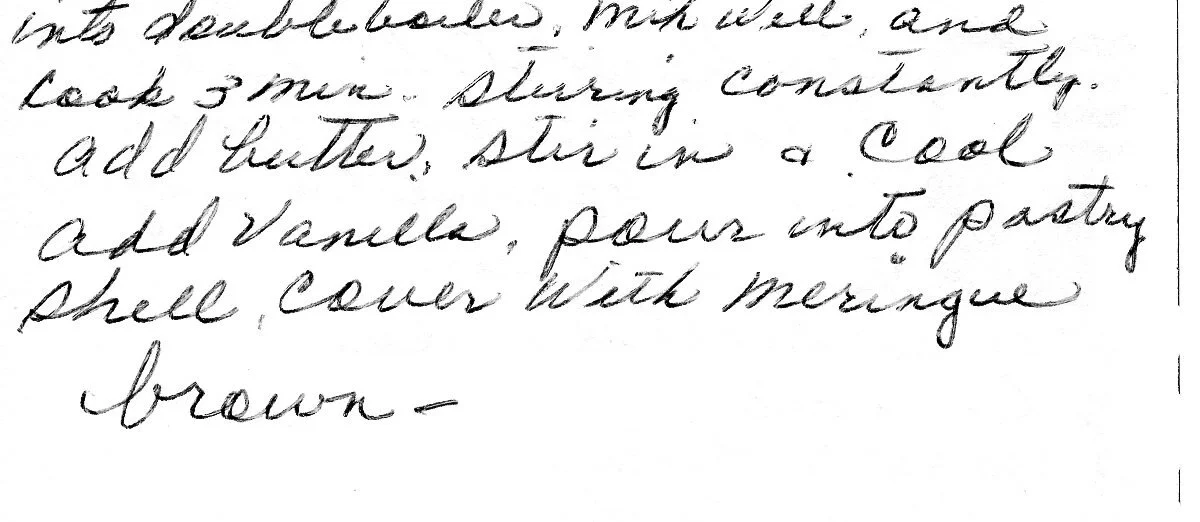 into doubleboiler, mix well, and
Cook 3 min. stirring constantly.
add butter, stir in & Cool
add Vanilla, pour into pastry
shell, Cover With meringue
brown –